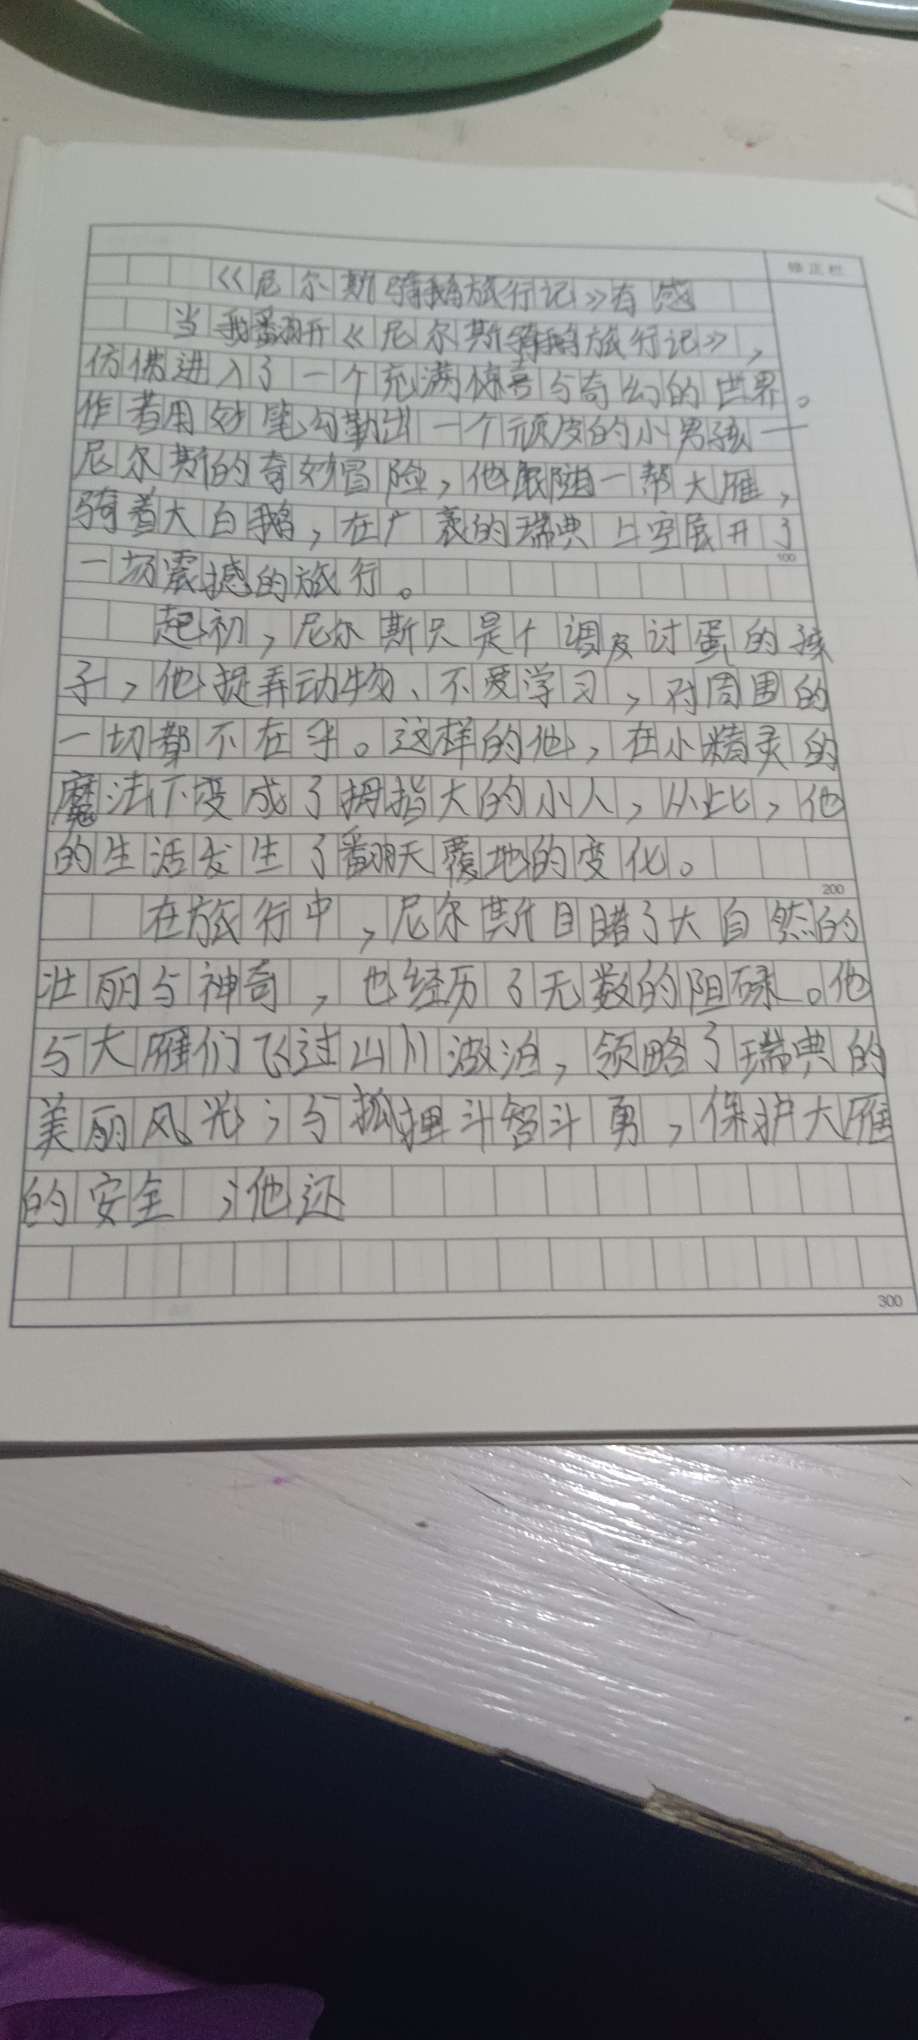 修正栏
《尼尔斯骑鹅旅行记》有感
当我翻开《尼尔斯骑鹅旅行记》，
仿佛进入了一个充满惊喜与奇幻的世界。
作者用妙笔勾勒出一个顽皮的小男孩一
尼尔斯的奇妙冒险，他跟随一帮大雁，
骑着大白鹅，在广袤的瑞典上空展开了
100
一场震撼的旅行。
起初，尼尔斯只是个调皮讨蛋的孩
子，他捉弄动物、不爱学习，对周围的
一切都不在乎。这样的他，在小精灵的
魔法下变成了拇指大的小人，从此，他
的生活发生了翻天覆地的变化。
200
在旅行中，尼尔斯目睹了大自然的
壮丽与神奇，也经历了无数的阻碍。他
与大雁们飞过山川湖泊，领略了瑞典的
美丽风光；与狐狸斗智斗勇，保护大雁
的安全；他还
300